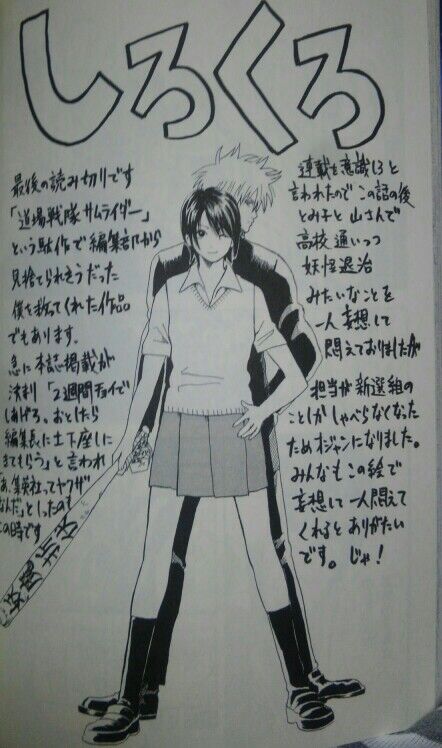 しろくろ
最後の読み切りです
「道場戦隊サムライダー」
という駄作で編集部から
見捨てられそうだった
僕を救ってくれた作品
でもあります。
急に本誌掲載が
決まり「2週間チョイで
しあげろ。おとしたら
編集長に土下座しに
きてもらう」と言われ
あ、集英社ってヤクザ
なんだ」としったのも
この時です
連載を意識しろと
言われたので この話の後
とみ子と山さんで
高校通いつつ
妖怪退治
みたいなことを
一人妄想して
悶えておりましたが
担当が新選組の
ことしかしゃべらなくなった
ためオジャンになりました。
みんなもこの絵で
妄想して一人悶えて
くれると ありがたい
です。じゃ!